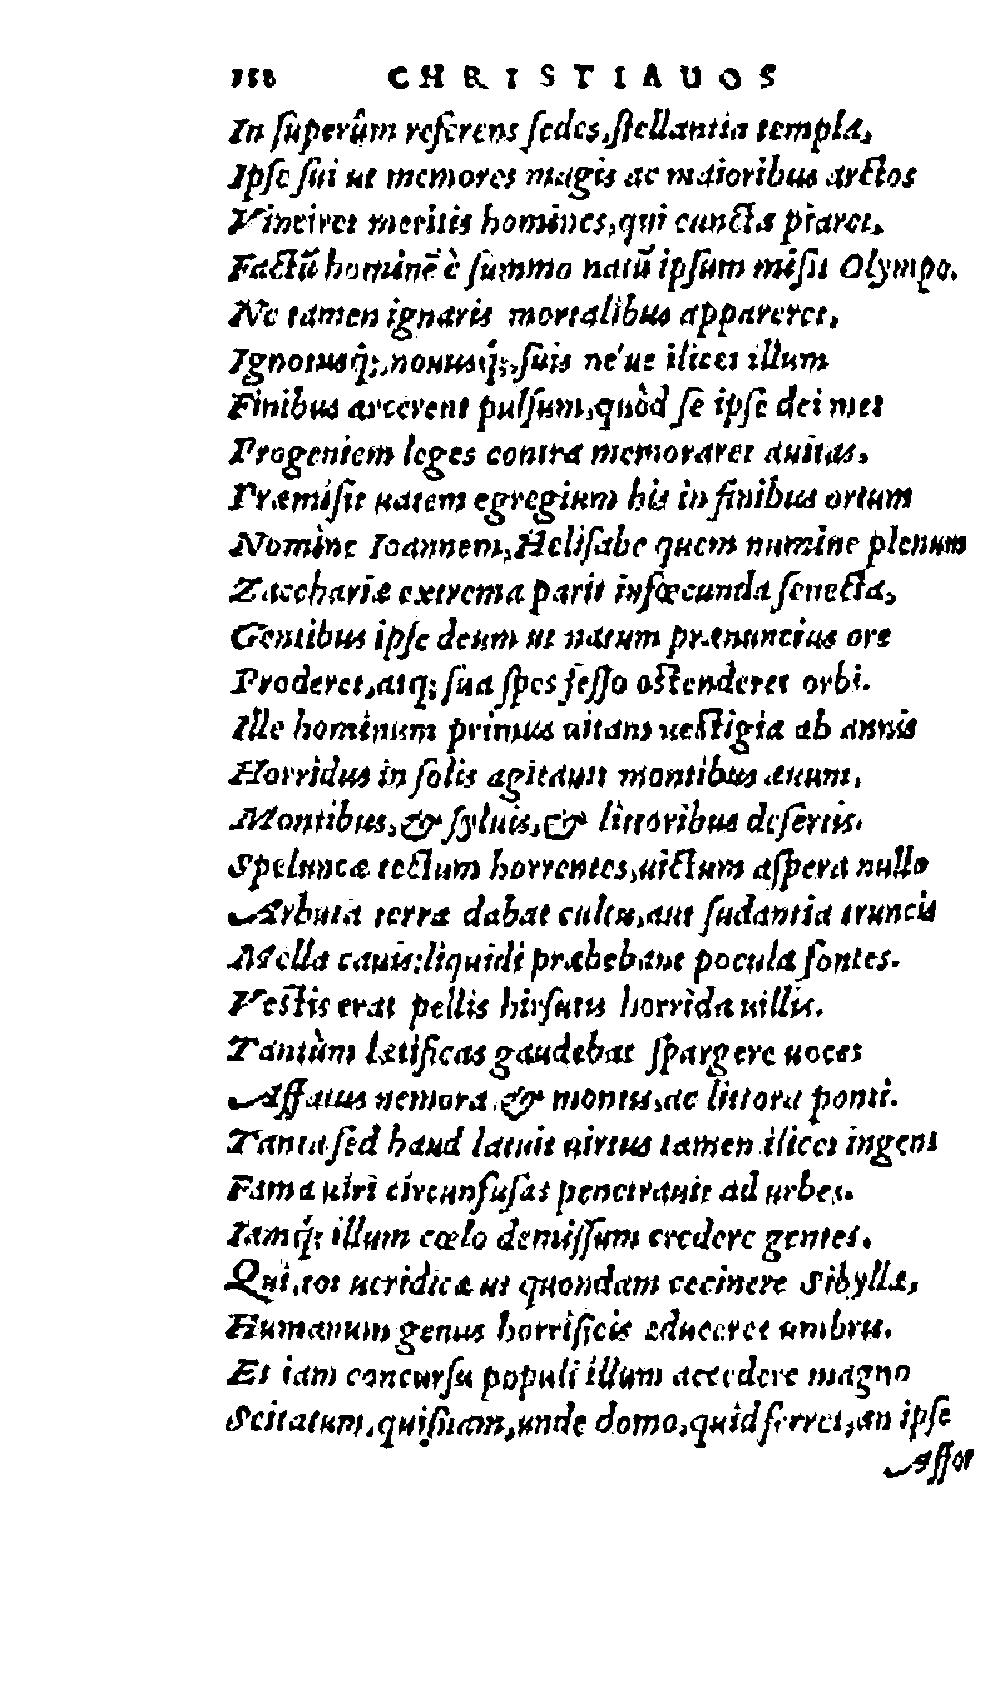 158 CHRISTIADOS
In ſuperûm referens ſedes, ſtellantia templa,
Ipſe ſui ut memores magis ac maioribus arctos
Vinciret meritis homines, qui cuncta piaret,
Factũ hominẽ è ſummo natũ ipſum miſit Olympo.
Ne tamen ignaris mortalibus appareret,
Ignotusq́;, nouusq́;, ſuis ne'ue ilicet illum
Finibus arcerent pulſum, quòd ſe ipſe dei met
Progeniem leges contra memoraret auitas,
Præmiſit uatem egregium his in finibus ortum
Nomine Ioannem, Heliſabe quem numine plenum
Zacchariæ extrema parit infœcunda ſenecta,
Gentibus ipſe deum ut natum prænuncius ore
Proderet, atq; ſua ſpes feſſo oſtenderet orbi.
Ille hominum primus uitans ueſtigia ab annis
Horridus in ſolis agitauit montibus æuum,
Montibus, & ſyluis, & littoribus deſertis.
Speluncæ tectum horrentes, uictum aſpera nullo
Arbuta terra dabat cultu, aut ſudantia truncis
Mella cauis: liquidi præbebant pocula fontes.
Veſtis erat pellis hirſutis horrida uillis.
Tantùm lætificas gaudebat ſpargere uoces
Affatus nemora, & montis, ac littora ponti.
Tanta ſed haud latuit uirtus tamen. ilicet ingens
Fama uiri circunfuſas penetrauit ad urbes.
Iamq́; illum cœlo demiſſum credere gentes,
Qui, tot ueridicæ ut quondam cecinere Sibyllæ,
Humanum genus horrificis educeret umbris.
Et iam concurſu populi illum accedere magno
Scitatum, quiſnam, unde domo, quid ferret, an ipſe
Affor